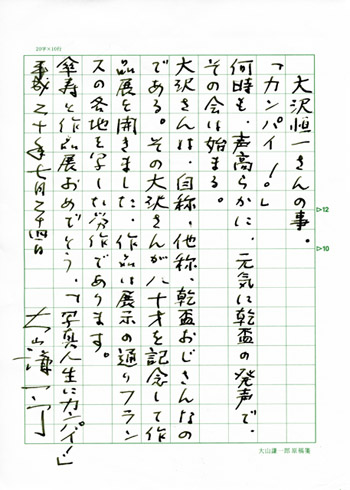 大沢恒一さんの事。
「カンパイ!。」
何時も、声高らかに、元気に乾盃の発声で、
その会は始まる。
大沢さんは、自称、他称、乾盃おじさんなの
である。その大沢さんが八十才を記念して作
品展を開きました。作品は展示の通りフラン
スの各地を写した労作であります。
傘寿と作品展おめでとう、「写真人生にカンパイ!」
平成二十年七月二十四日
大山謙一郎
20字×10行
12
10
大山謙一郎原稿箋